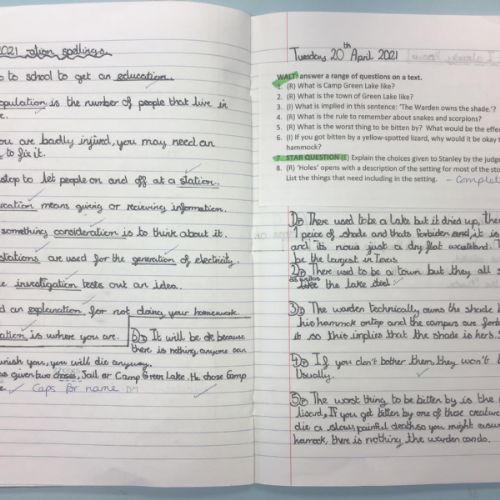 2021 ation spellings
to school to get an education.
population is the number of people that live in
you are badly injured, you may need an
to fix it.
stop to let people on and off at a station.
means giving or recieving information.
something consideration is to think about it.
stations are used for the generation of electricity.
investigation tests out an idea.
an explanation for not doing your homework.
is where you are.
6) It will be ok because
there is nothing anyone can
you, you will die anyway.
given two choses, Jail or Camp Green Lake. He chose Camp
Caps for name
Tuesday 20th April 2021
WALT: answer a range of questions on a text.
1. (R) What is Camp Green Lake like?
2. (R) What is the town of Green Lake like?
3. (I) What is implied in this sentence: 'The Warden owns the shade.'?
4. (R) What is the rule to remember about snakes and scorpions?
5. (R) What is the worst thing to be bitten by? What would be the effe
6. (I) If you got bitten by a yellow-spotted lizard, why would it be okay
hammock?
7. STAR QUESTION (E) Explain the choices given to Stanley by the judge
8. (R) 'Holes' opens with a description of the setting for most of the sto
List the things that need including in the setting.
1) There used to be a Lake but it dried up, The
1 peice of shade and thats forbiden and it is
and its now just a dry flat
be the largest in Texas
2) There used to be a town but they all
like the lake did
3) The warden technically owns the shade
his hamock ontop and the campers are
it so this implies that the shade is hers
4) If you don't bother them, they won't
usually.
5) The worst thing to be bitten by is the
lizard, If you get bitten by one of those creature
die a slow painful death so you might
hamock, there is nothing the warden can do.